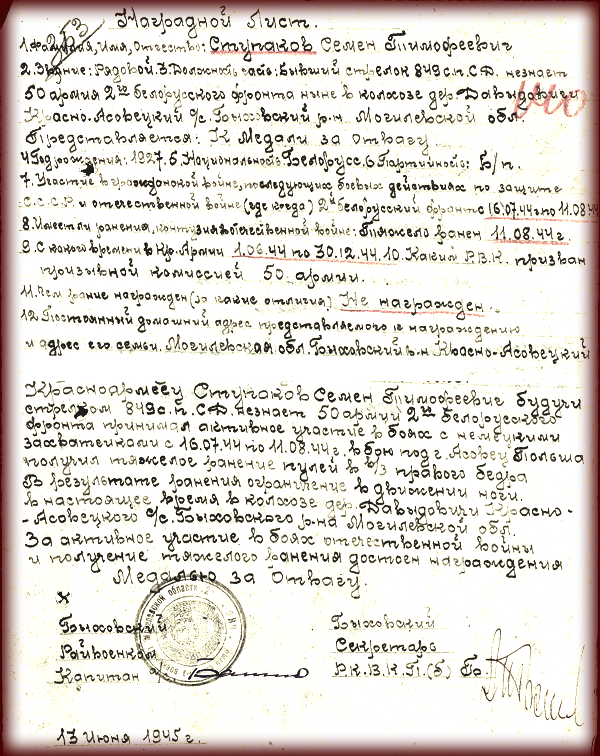 Наградной Лист.
253
1. Фамилия, Имя, Отечество: Ступаков Семен Тимофеевич
2. Звание: Рядовой. 3. Должность часть: Бывший стрелок 849 с.п. С.Д. незнает
50 армия 2го белорусского фронта ныне в колхозе дер. Давыдовичи
Красно-Асовецкий с/с. Быховский р.н. Могилевской обл.
Представляется: К Медали за Отвагу
4. Год рождения: 1927. 5. Национальность: Белорусс. 6 Партийность: б/п.
7. Участие в гражданской войне, последующих боевых действиях по защите
С.С.С.Р. и отечественной войне (где когда) 2й белорусский фронт с 16.07.44 по 11.08.44
8. Имеет ли ранения, контузия в отечественной войне: Тяжело ранен 11.08.44 г.
9. С какого времени в Кр. Армии 1.06.44 по 30.12.44. 10. Каким Р.В.К. призван
призывной комиссией 50 армии.
11. Чем ранее награжден (за какие отличия) Не награжден.
12. Постоянный домашний адрес представляемого к награждению
и адрес его семьи. Могилевская обл. Быховский р.н. Красно-Асовецкий
Красноармеец Ступаков Семен Тимофеевич будучи
стрелком 849 с.п. С.Д. незнает 50 армии 2го белорусского
фронта принимал активное участие в боях с немецкими
захватчиками с 16.07.44 по 11.08.44 г. в бою под г. Асовец Польша
получил тяжелое ранение пулей в в/з правого бедра
В результате ранения ограничение в движении ноги.
в настоящее время в колхозе дер. Давыдовичи Красно-
-Асовецкого с/с. Быховского р-на Могилевской обл.
За активное участие в боях отечественной войны
и получение тяжелого ранения достоен награждения
Медалью за Отвагу.
х
Быховский
Райвоенком
Капитан
Быховский
Секретарь
Р.К.В.К.П.(б) Бр.
13 Июня 1945 г.